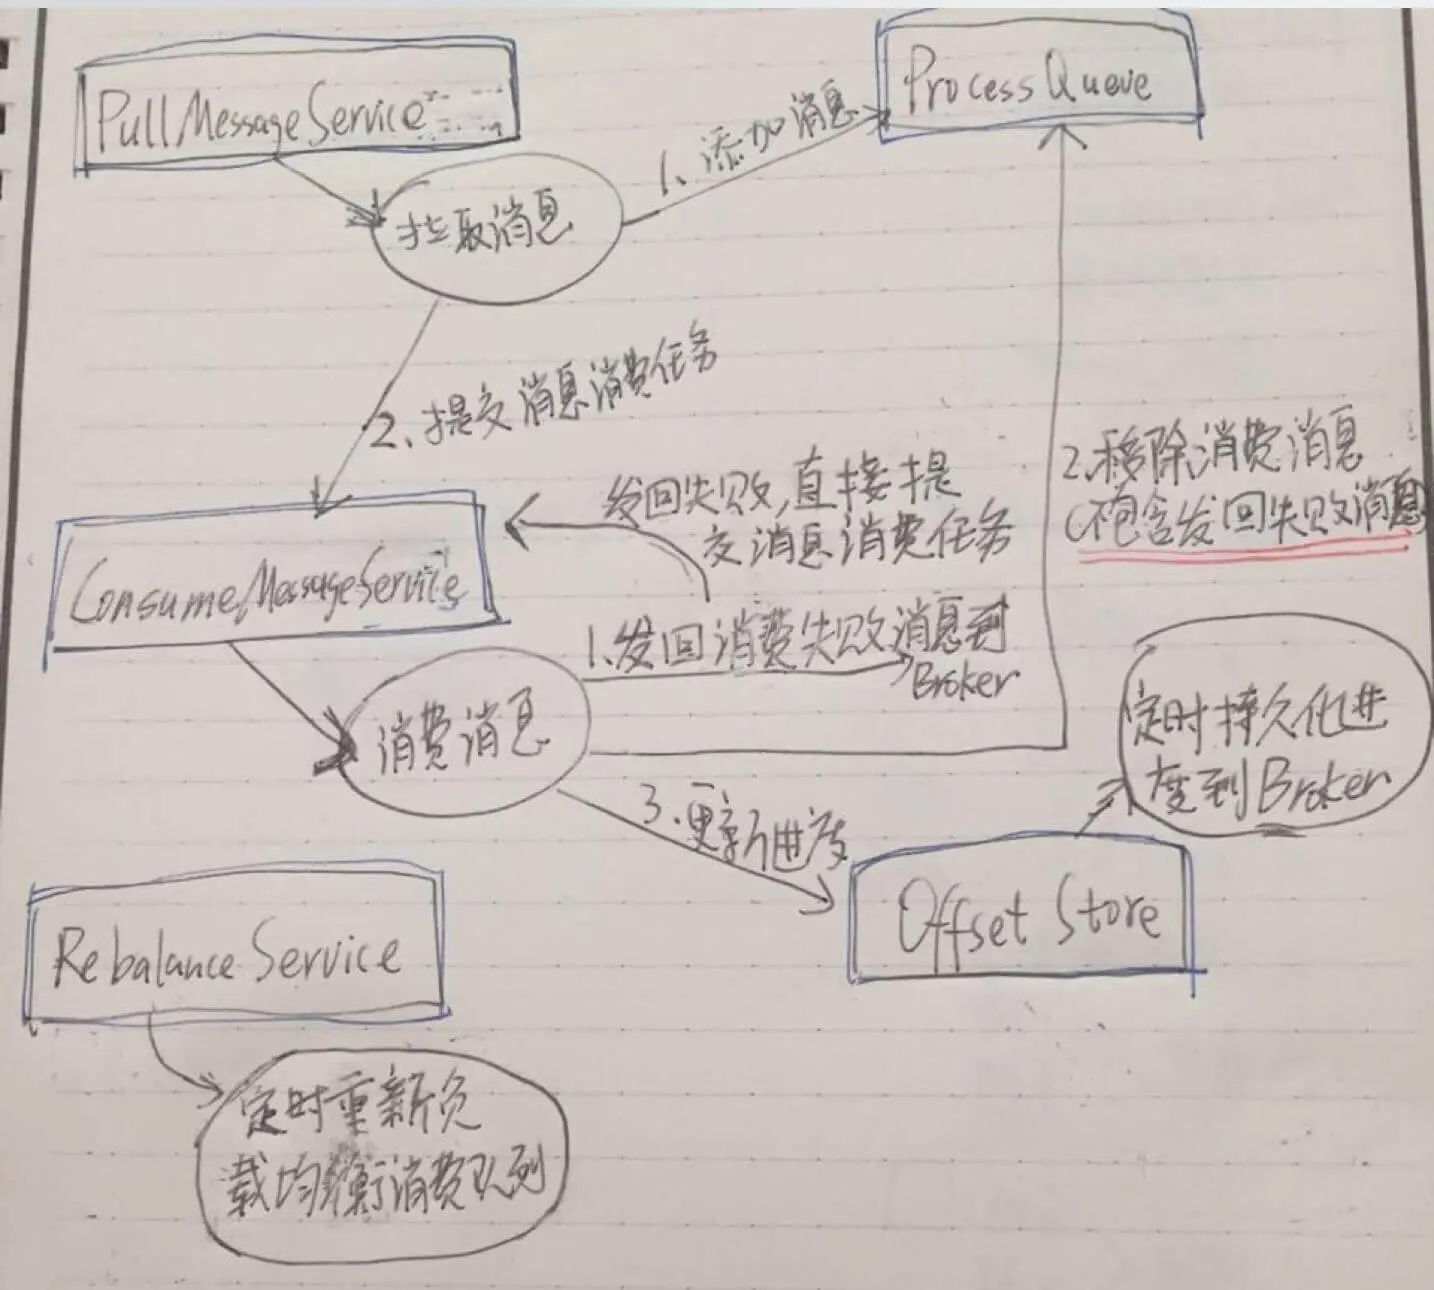 PullMessageService
ProcessQueue
1、添加消息
拉取消息
2、提交消息消费任务
发回失败,直接提
交消息消费任务
2.移除消费消息
(不包含发回失败消息)
ConsumeMessageService
1.发回消费失败消息到
Broker
消费消息
定时持久化进
度到Broker
3.更新进度
Offset Store
RebalanceService
定时重新负
载均衡消费队列